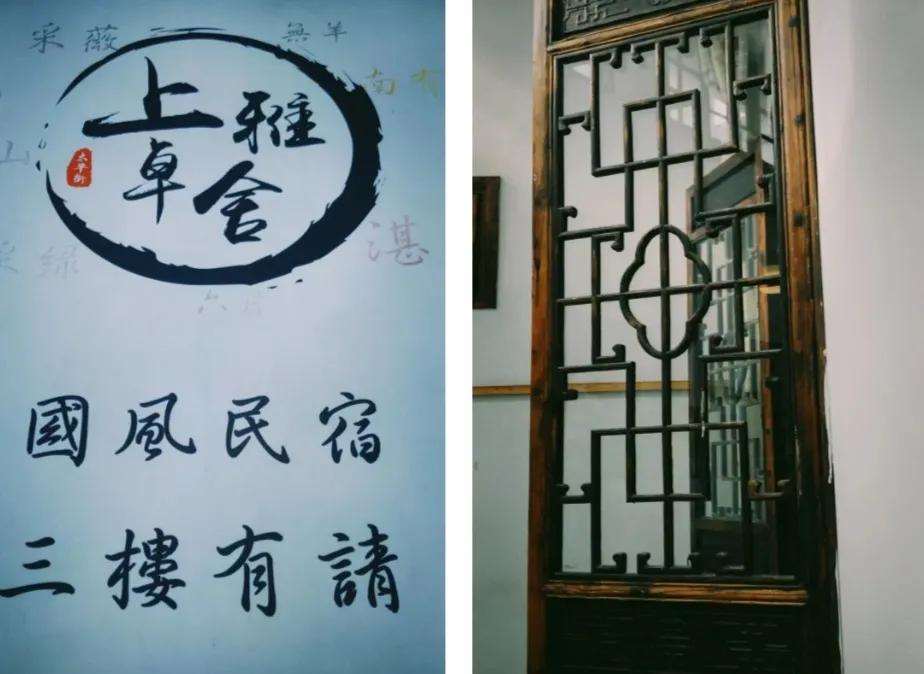 采薇
無羊
南有
上卓
雅舍
太平街
山
湛
采綠
六月
國風民宿
三樓有請